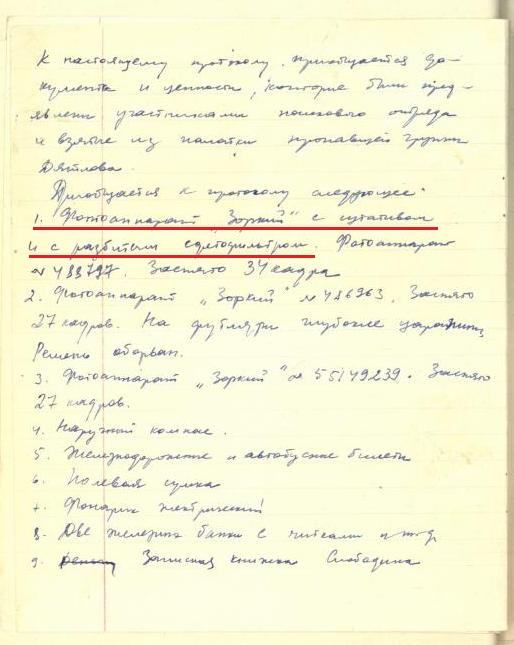 К настоящему протоколу приобщается до-
кументы и ценности, которые были пред-
явлены участниками поискового отряда
и взятые из палатки пропавшей группы
Дятлова.
Приобщается к протоколу следующее:
1. Фотоаппарат „Зоркий" с штативом
и с разбитым светофильтром. Фотоаппарат
№ 488797. Заснято 34 кадра
2. Фотоаппарат „Зоркий" № 486963. Заснято
27 кадров. На футляри глубокие царапины,
Ремень оборван.
3. Фотоаппарат „Зоркий" № 55149239. Заснято
27 кадров.
4. Наружный компас.
5. Железнодорожные и автобусные билеты
6. Полевая сумка
7. Фонарик электрический
8. Две железных банки с нитками и т.д.
9. Записная книжка Слободина